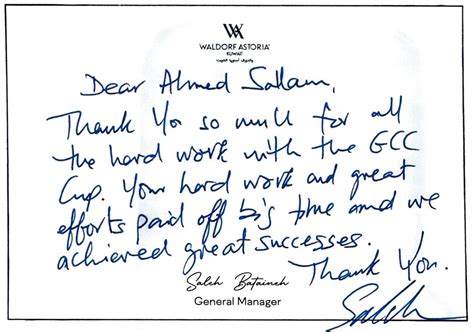 WALDORF ASTORIA
KUWAIT
والدورف أستوريا الكويت
Dear Ahmed Sallam,
Thank You so much for all
the hard work with the GCC
Cup. Your hard work and great
efforts paid off big time and we
achieved great successes.
Thank You.
Saleh Bataineh
General Manager
Saleh